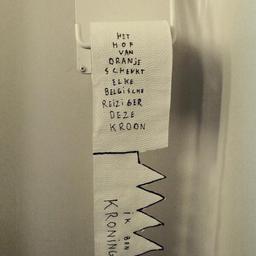 HET
HOF
VAN
ORANJE
SCHENKT
ELKE
BELGISCHE
REIZIGER
DEZE
KROON
IK BEN
KRONING